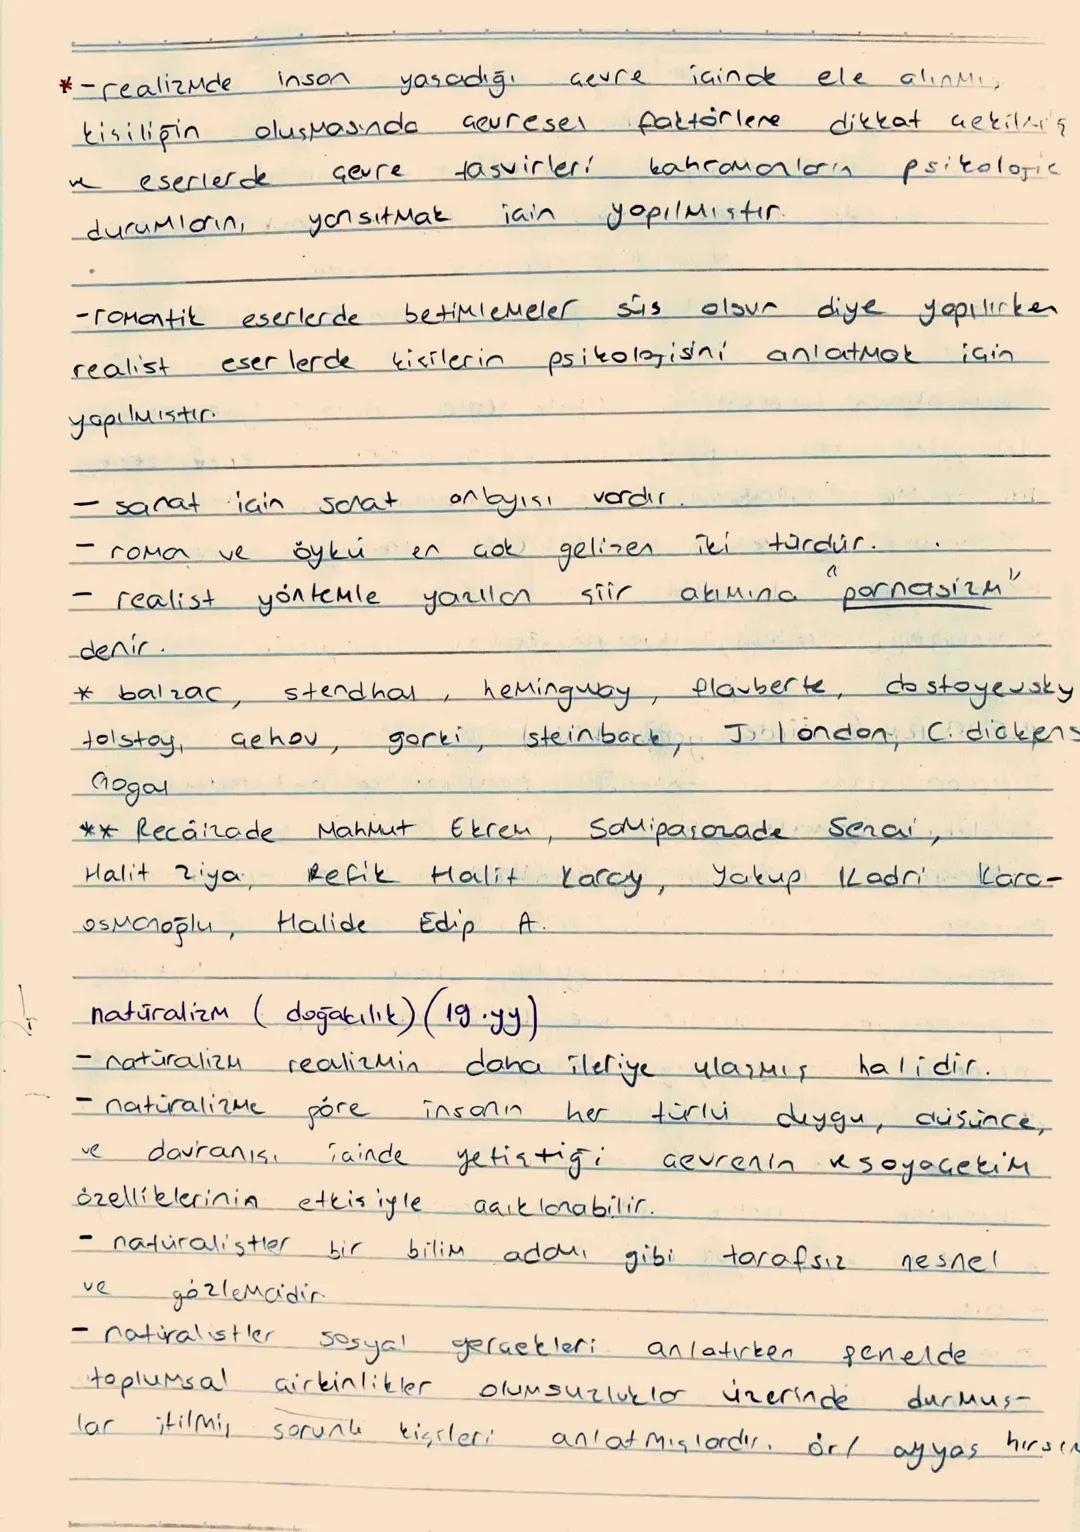 * - realizmde insan yaşadığı çevre içinde ele alınmış,
kişiliğin oluşmasında çevresel faktörlere dikkat çekilmiş
ve eserlerde çevre tasvirleri kahramanların psikolojik
durumlarını yansıtmak için yapılmıştır.
- romantik eserlerde betimlemeler süs olsun diye yapılırken
realist eserlerde kişilerin psikolojisini anlatmak için
yapılmıştır.
- sanat için sanat anlayışı vardır.
- roma ve öykü en çok gelişen iki türdür.
- realist yöntemle yazılan şiir akımına "parnasizm"
denir.
* balzac, stendhal, hemingway, flauberte, dostoyevsky
tolstoy, çehov, gorki, steinback, J. london, C. dickens
Gogol
** Recâizade Mahmut Ekrem, Samipaşazade Sezai,
Halit Ziya, Refik Halit Karay, Yakup Kadri Kara-
osmanoğlu, Halide Edip A.
natüralizm (doğacılık) (19.yy)
- natüralizm realizmin daha ileriye ulaşmış halidir.
- natüralizme göre insanın her türlü duygu, düşünce,
ve davranışı içinde yetiştiği çevrenin ve soyaçekim
özelliklerinin etkisiyle açıklanabilir.
- natüralistler bir bilim adamı gibi tarafsız nesnel
ve gözlemcidir.
- natüralistler sosyal gerçekleri anlatırken genelde
toplumsal çirkinlikler olumsuzluklar üzerinde durmuş-
lar itilmiş sorunlu kişileri anlatmışlardır. ör/ ayyaş